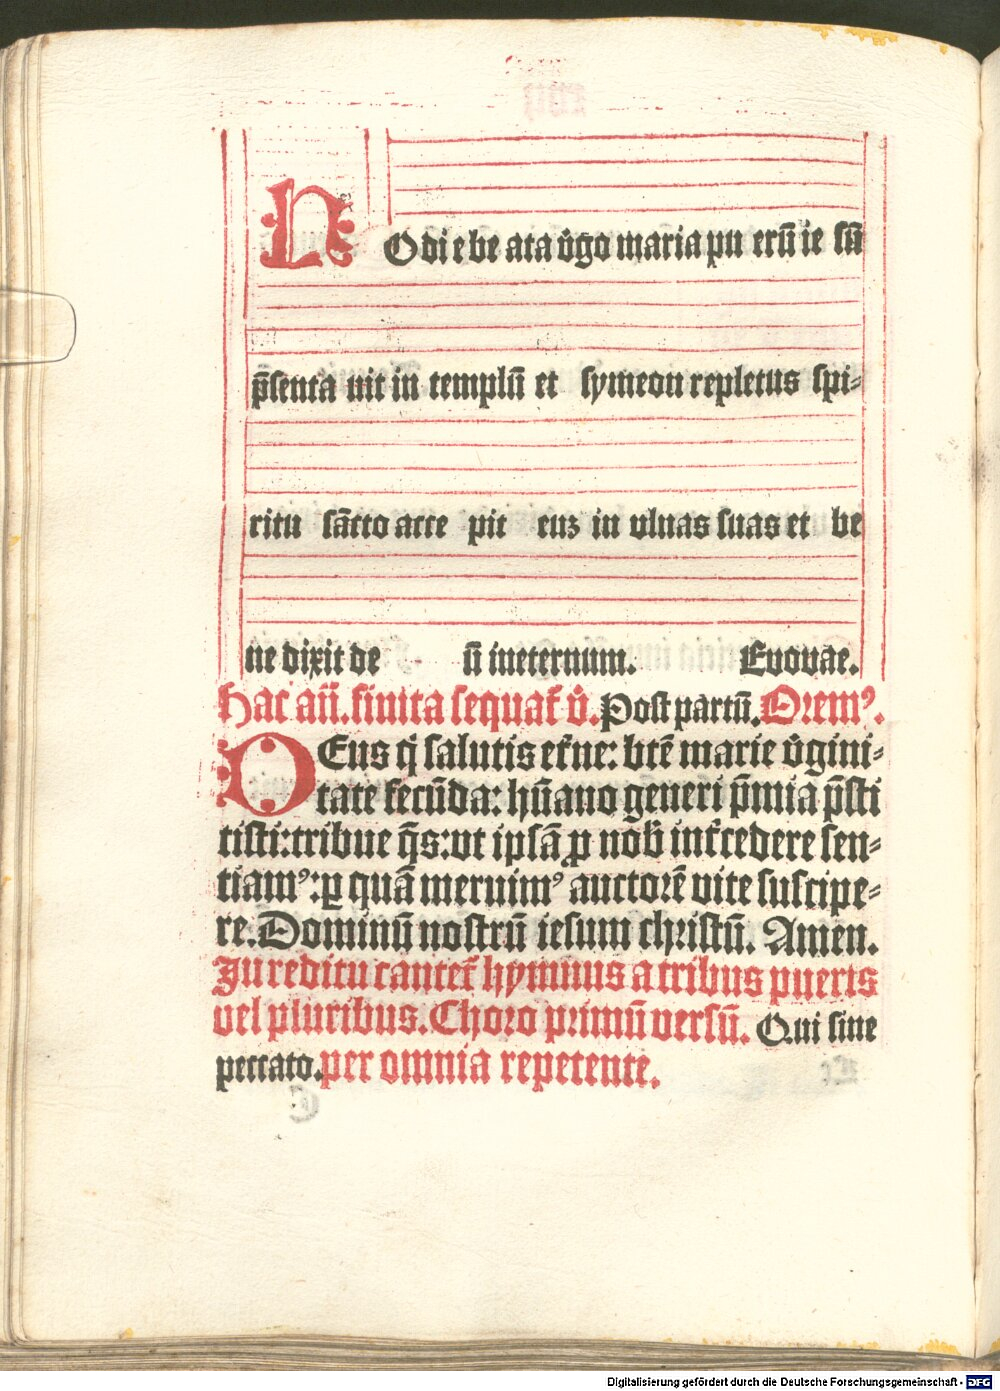 HOdi e be ata v̾go maria pu erū ie sū
p̄senta uit in templū et symeon repletus spi⸗
ritu sācto acce pit euꝫ in vlnas suas et be
ne dixit de ū ineternum. Euouae.
Hac añ. finita sequat̄ v̾. Post partū. Orem⁹.
DEus q̇ salutis et̾ne: btē marie v̾gini⸗
tate fecūda: hūano generi p̄mia p̄sti
tisti: tribue q̄s: vt ipsā ꝓ nob̄ int̾cedere sen⸗
tiam⁹: ꝑ quā meruim⁹ auctorē vite suscipe⸗
re. Dominū nostrū iesum christū. Amen.
In reditu cantet̄ hymnus a tribus pueris
vel pluribus. Choro primū versū. Qui sine
peccato. per omnia repetente.
Digitalisierung gefördert durch die Deutsche Forschungsgemeinschaft - DFG